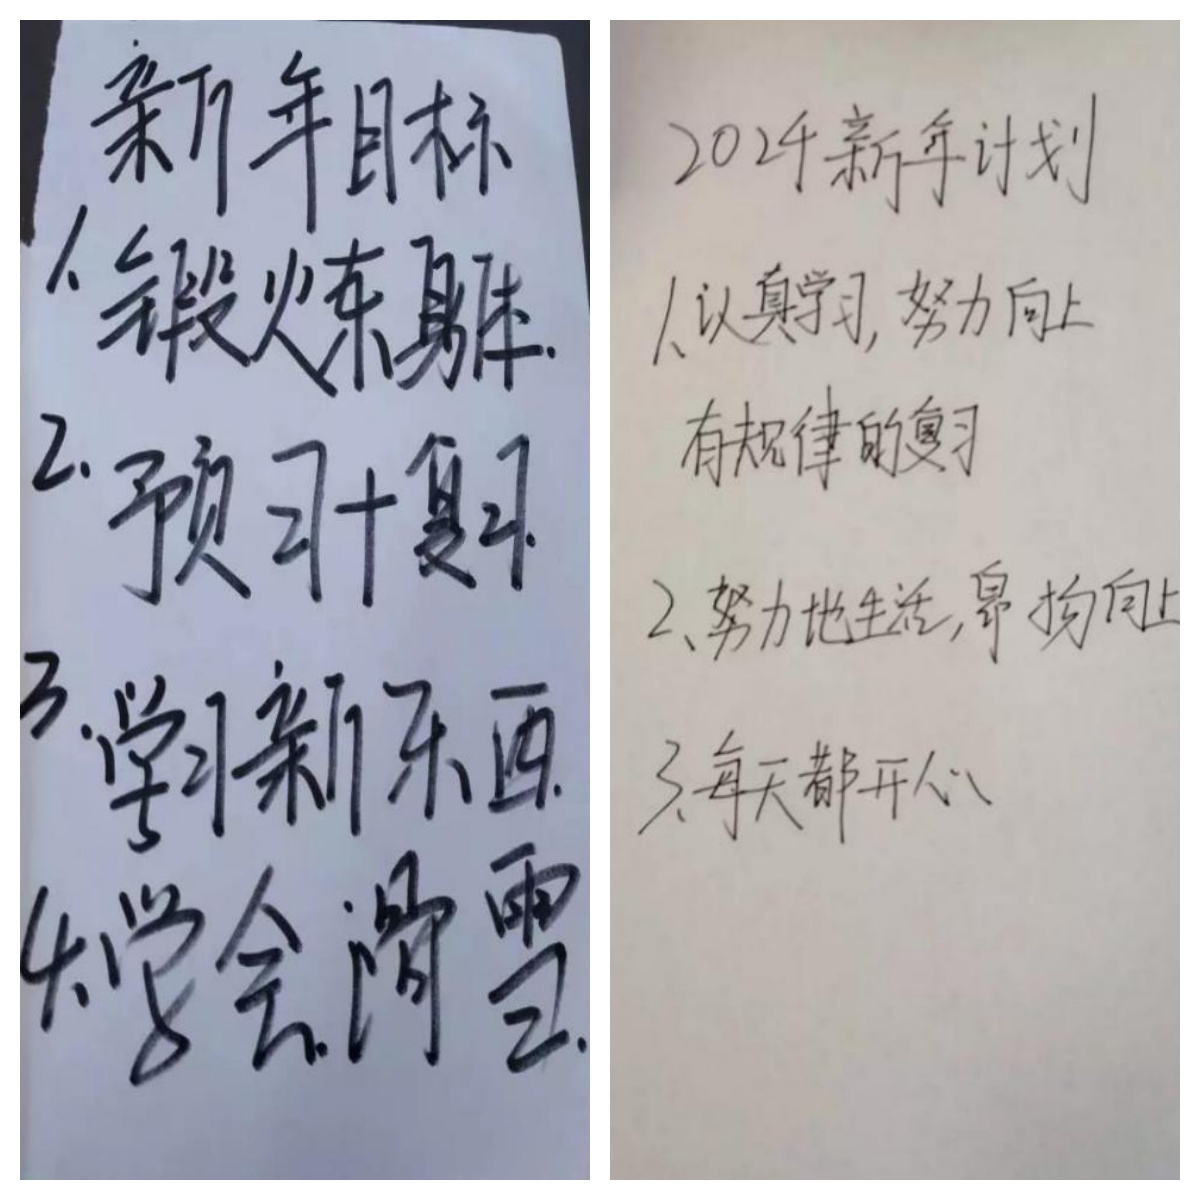 新年目标
1.锻炼身体.
2.预习+复习.
3.学习新东西.
4.学会滑雪.
2024新年计划
1、认真学习,努力向上
有规律的复习
2、努力地生活,昂扬向上
3、每天都开心